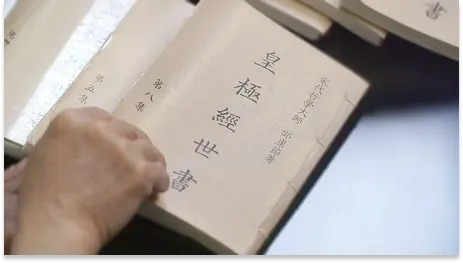 宋代哲學大師 邵康節著
皇極經世書
第八集
第五集
書